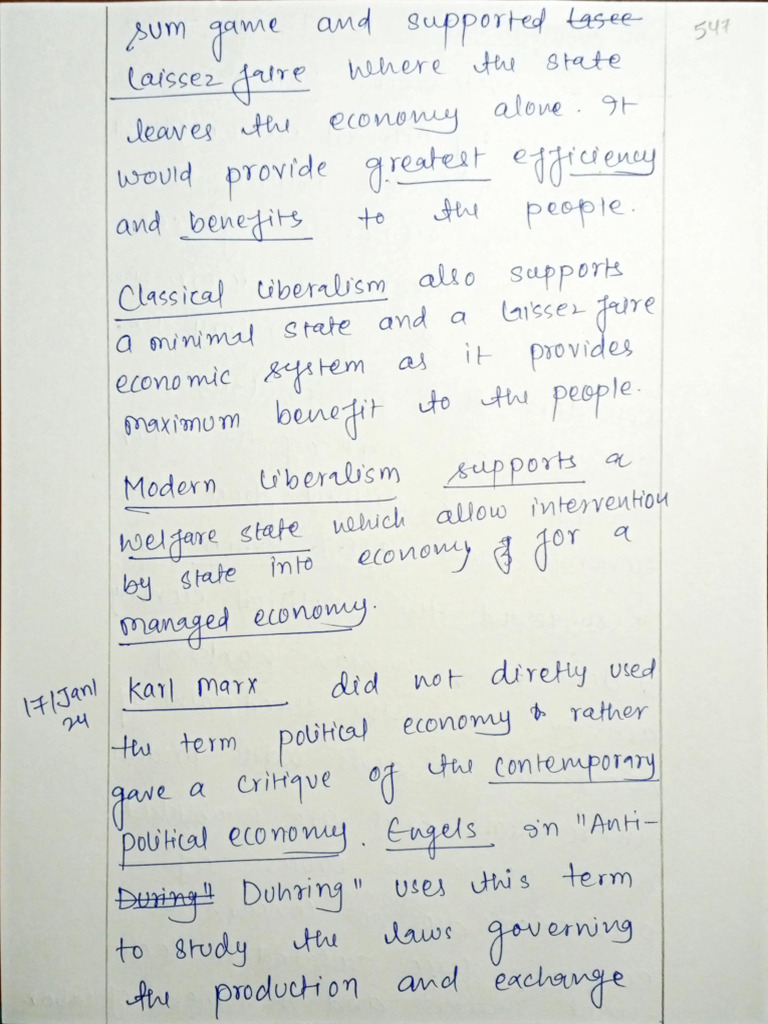 547
sum game and supported lasee
laissez faire where the state
leaves the economy alone. It
would provide greatest efficiency
and benefits to the people.
Classical liberalism also supports
a minimal state and a laissez faire
economic system as it provides
maximum benefit to the people.
Modern liberalism supports a
welfare state which allow intervention
by state into economy for a
managed economy.
17/Jan/
24
Karl Marx did not diretly used
the term political economy & rather
gave a critique of the contemporary
political economy. Engels in "Anti-
During" Duhring" uses this term
to study the laws governing
the production and exchange